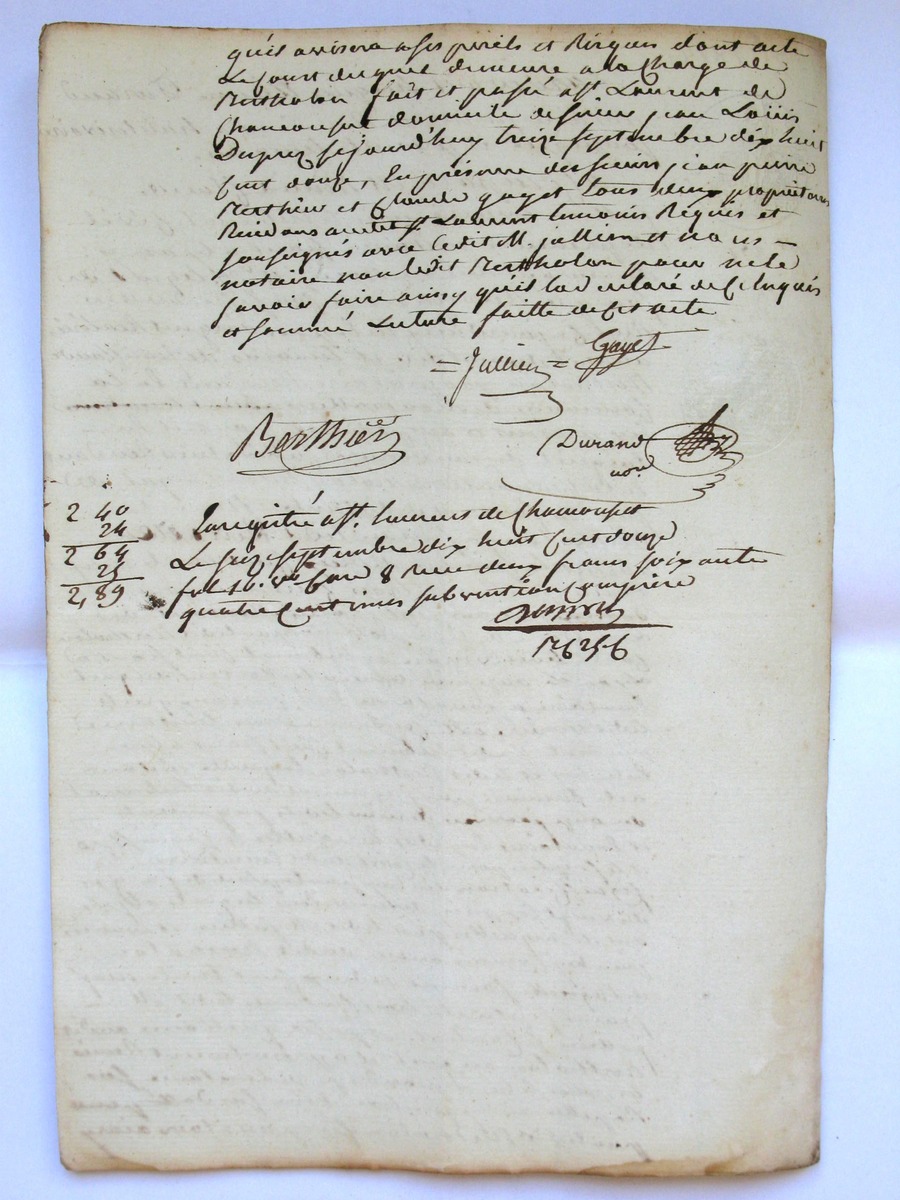 qu'il avisera a ses perils et Risques dont acte
Le sout duquel demeure a la Charge de
Bertholon fait et passé a St. Laurent de
Chamousset domicile du sieur jean Loüis
Duprez cejourd'huy treize septembre dix huit
cent douze, En présence des sieurs jean pierre
Berthier et Claude gayet tous deux propriétaires
Residans audit St Laurent temoins Requis et
soussignés avec ledit M. jullien et nous =
notaire non ledit Bertholon pour ne le
savoir faire aussy qu'il l'a declaré de ce Enquis
et sommé Lecture faitte de cet acte
= Jullien = Gayet
Berthier
Durand
not.
2 40
24
2 64
25
2,89
Enregistré a St. Laurens de Chamousset
Le seize septembre dix huit cent douze
fol 16. vo Case 8 Reçu deux francs soixante
quatre centimes subvention comprise
17625-6